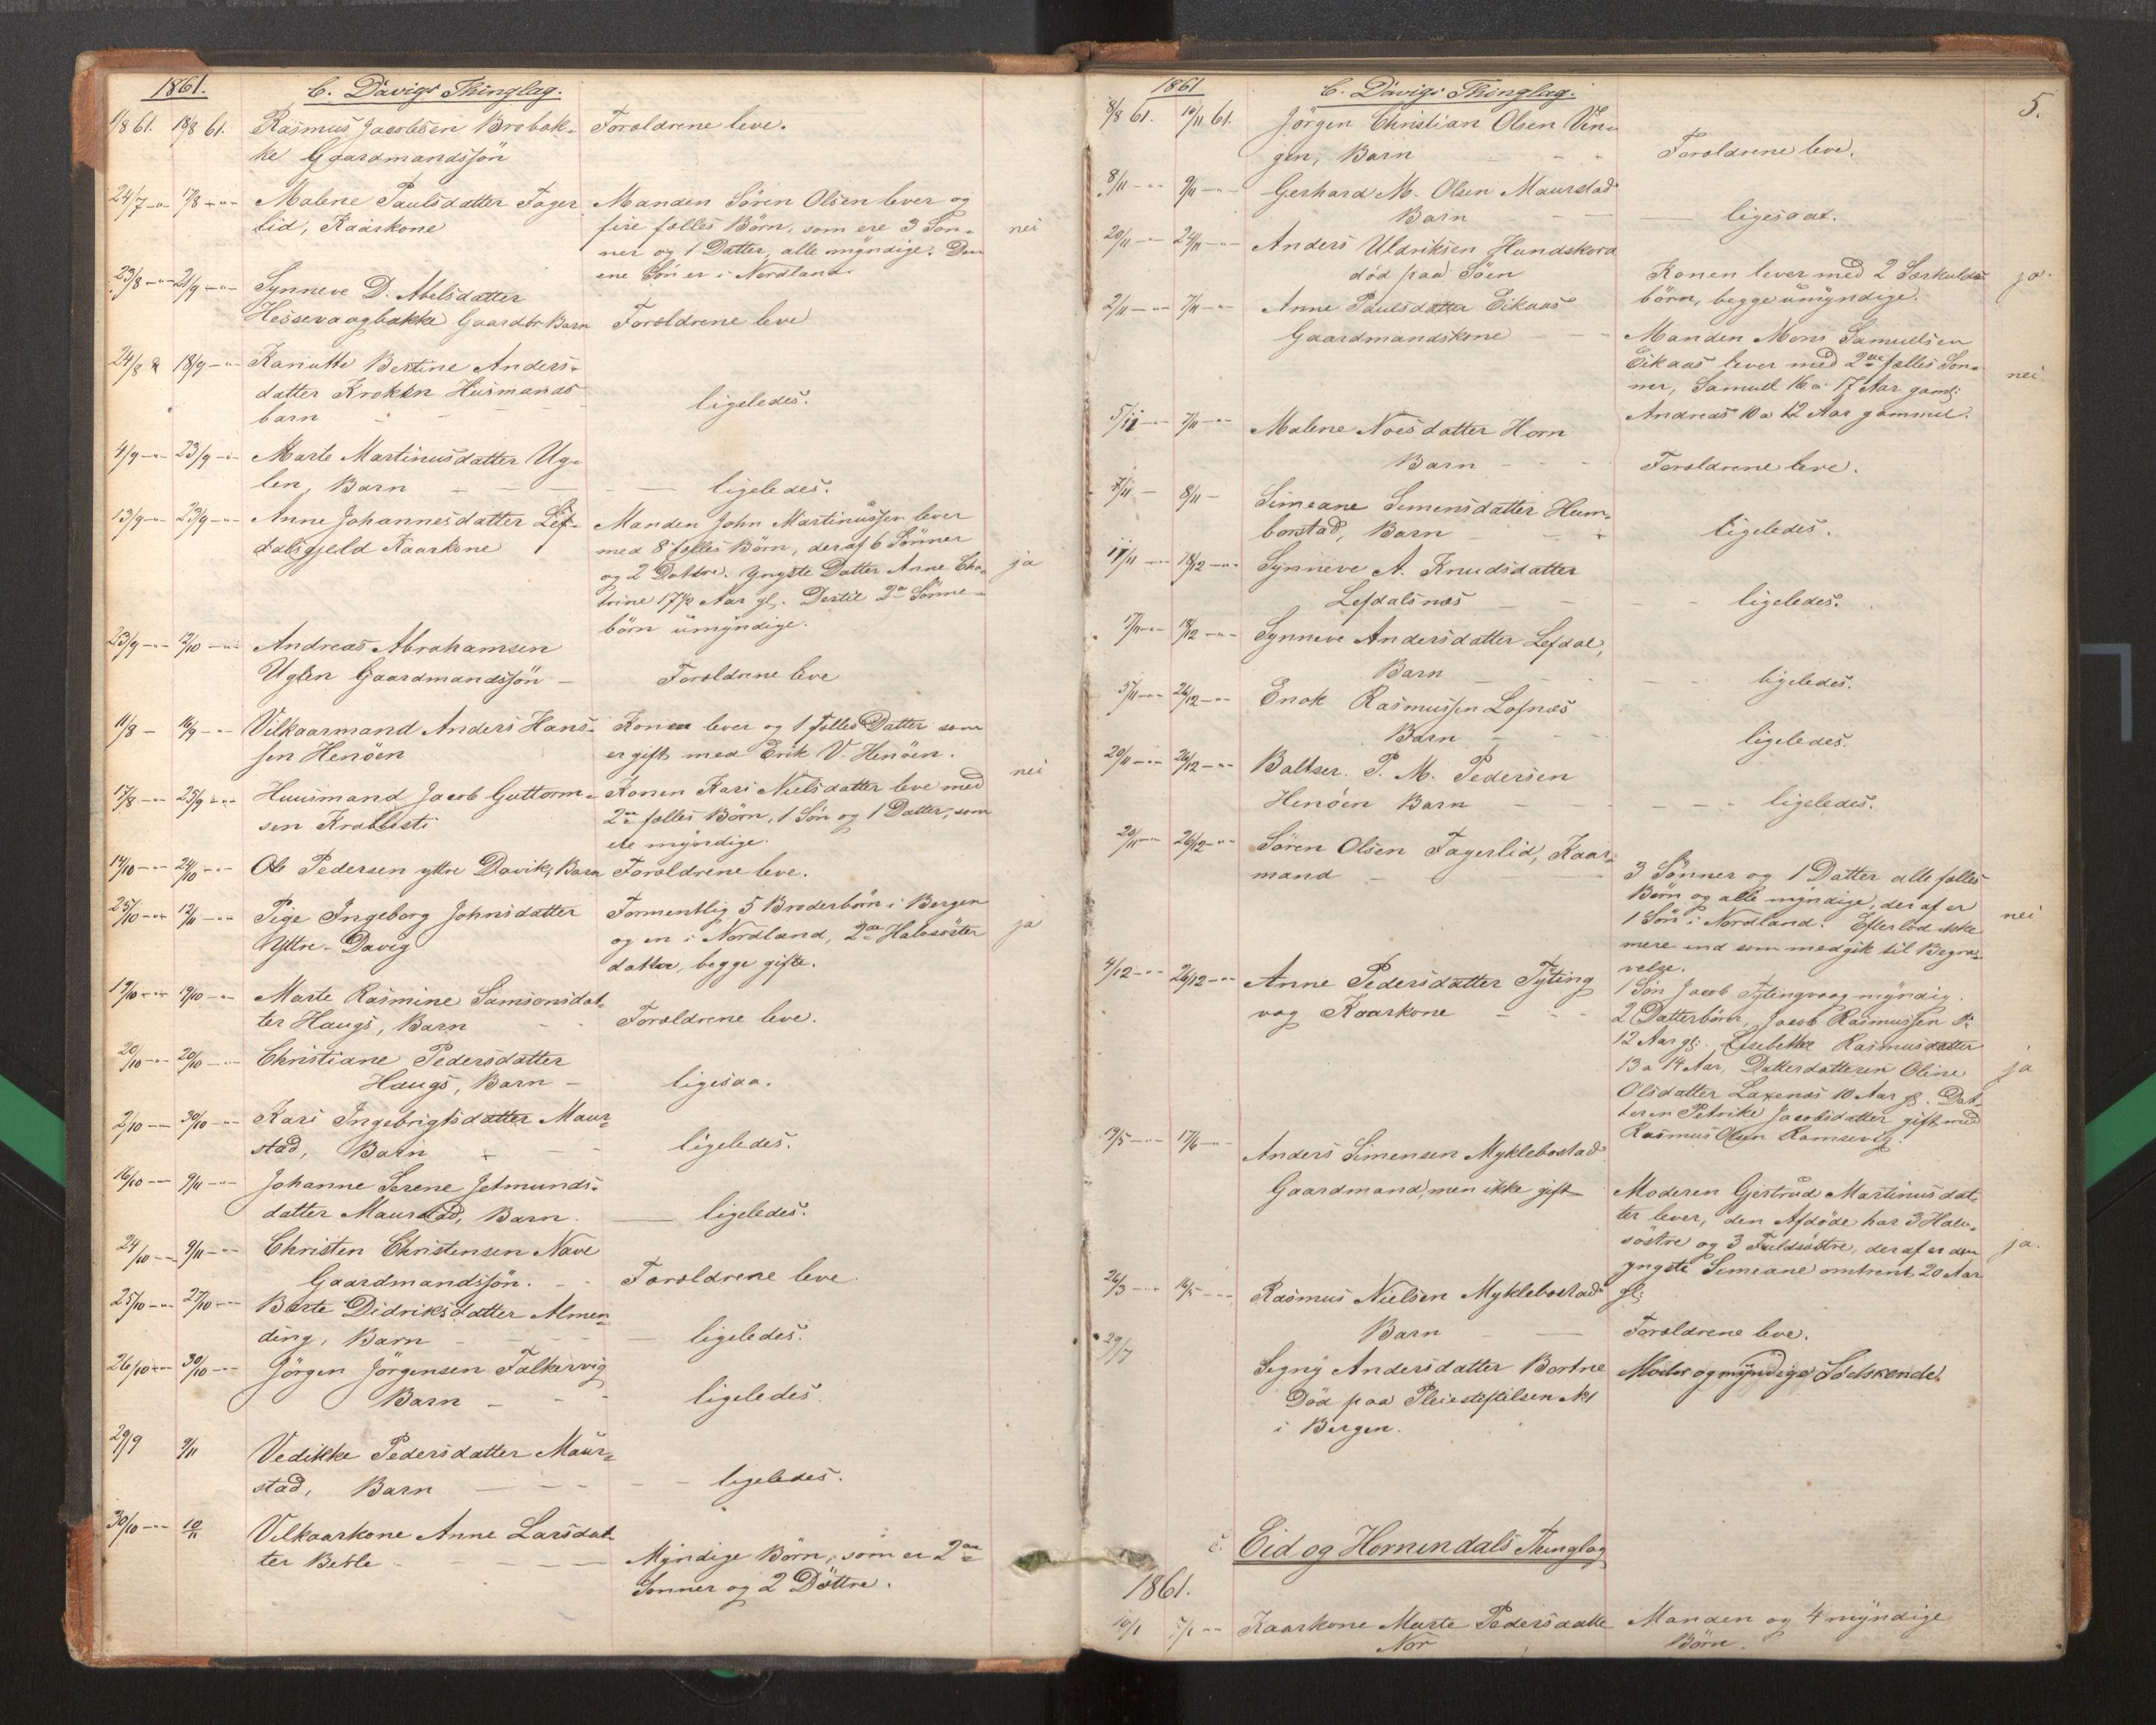 1861. C. Davigs Thinglag.
1/8 61. 18/8 61. Rasmus Jacobsen Brobak- Forældrene leve.
ke Gaardmandssön
24/7 -"- 17/8 -"- Malene Paulsdatter Fager Manden Sören Olsen lever og
lid, Kaarkone fire fælles Börn, som ere 3 Son- nei
ner og 1 Datter, alle myndige. Den
ene Sön er i Nordland.
23/8 -"- 21/9 -"- Synneve D. Abelsdatter
Hessevaagbakke Gaardbr Barn Forældrene leve
24/8 18/9 -"- Kanutte Bertine Anders-
datter Kroken Husmands
barn - ligeledes.
4/9 -"- 23/9 -"- Marte Martinusdatter Ug-
len, Barn - ligeledes.
13/9 -"- 23/9 -"- Anne Johannesdatter Lef- Manden John Martinussen lever
dalsgjeld Kaarkone med 8 fælles Börn, deraf 6 Sönner
og 2 Döttre. Yngste Datter Anne Cha- ja
trine 17½ Aar gl. Dertil 2 Sönne-
börn umyndige.
23/9 -"- 12/10 -"- Andreas Abrahamsen
Uglen Gaardmandssön - Forældrene leve
11/8 - 16/9 -"- Vilkaarmand Anders Hans- Konen lever og 1 Fælles Datter som
sen Henöen er gift med Erik V. Henöen.
nei
17/8 -"- 25/9 -"- Huusmand Jacob Guttorm- Konen Kari Nielsdatter leve med
sen Krabbesti 2de fælles Börn, 1 Sön og 1 Datter, som
ere myndige.
14/10 -"- 24/10 -"- Ole Pedersen yttre Davik, Barn Forældrene leve.
25/10 -"- 12/11 -"- Pige Ingeborg Johnsdatter Formentlig 5 Broderbörn i Bergen
Yttre-Davig og en i Nordland, 2de Halvsöster ja
døtter, begge gifte.
19/10 -"- 19/10 -"- Marte Rasmine Samsonsdat-
ter Haugs, Barn - Forældrene leve.
20/10 -"- 20/10 -"- Christiane Pedersdatter
Haugs, Barn - ligesaa.
2/10 -"- 30/10 -"- Kari Ingebrigtsdatter Maur-
stad, Barn - ligeledes.
16/10 -"- 9/11 -"- Johanne Serene Jetmunds-
datter Maurstad, Barn. - ligeledes.
24/10 -"- 9/11 -"- Christen Christensen Nave
Gaardmandssön. - Forældrene leve.
25/10 -"- 27/10 -"- Berte Didriksdatter Almen-
ding, Barn - ligeledes.
26/10 -"- 30/10 -"- Jörgen Jörgensen Falkevig
Barn - ligeledes.
29/9 9/11 Vedikke Pedersdatter Maur-
stad, Barn - ligeledes.
30/10 -"- 10/11 Vilkaarkone Anne Larsdat-
ter Berle - Myndige Börn, som er 2de
Sonner og 2 Döttre.
5.
1861 C. Davigs Thinglag.
8/8 61. 10/11 61. Jörgen Christian Olsen Vin-
gen, Barn - Forældrene leve.
8/11 -"- 9/11 -"- Gerhard M. Olsen Maurstad
Barn - ligesaa.
20/11 -"- 24/11 -"- Anders Uldriksen Hundskord
död paa Söen Konen lever med 2 Særkulds- ja.
börn, begge umyndige.
2/11 -"- 7/11 -"- Anne Paulsdatter Eikaas
Gaardmandskone - Manden Mons Samuelsen
Eikaas lever med 2de fælles Son-
ner, Samuel 16 a 17 Aar gaml: nei
Andreas 10 a 12 Aar gammel.
5/11 -"- 7/11 -"- Malene Noesdatter Horn
Barn - Forældrene leve.
7/11 - 8/11 - Simeane Simensdatter Hum-
borstad, Barn - ligeledes.
11/11 -"- 18/12 -"- Synneve A. Knudsdatter
Lefdalsnæs - ligeledes.
17/11 -"- 18/12 -"- Synneve Andersdatter Lefdal,
Barn - ligeledes.
5/11 -"- 26/12 -"- Enok Rasmussen Lofnæs
Barn - ligeledes.
20/11 -"- 26/12 -"- Baltser. P. M. Pedersen
Henöen Barn - ligeledes.
20/11 -"- 26/12 -"- Sören Olsen Fagerlid, Kaar-
mand - 3 Sönner og 1 Datter alle fælles
Börn og alle myndige, deraf er
1 Sön i Nordland. Efterlod ikke nei
mere end som medgik til Begra-
velse.
4/12 -"- 26/12 -"- Anne Pedersdatter Tyting
vog Kaarkone - 1 Sön Jacob Tytingvaag myndig.
2 Datterbörn, Jacob Rasmussen
12 Aar gl. Elsebethe Rasmusdatter
13 a 14 Aar, Datterdatteren Oline ja
Olsdatter Laxenæs 10 Aar gl. Dat-
teren Petrike Jacobsdatter gift med
Rasmus Olsen Ramsevig.
19/5 -"- 17/6 -"- Anders Simensen Myklebostad
Gaardmand, men ikke gift Moderen Gjertrud Martinusdat-
ter lever, den Afdöde har 3 Halv-
söstre og 3 Fuldsöstre, deraf er den ja.
yngste Simeane omtrent 20 Aar
gl.
26/3 -"- 16/5 -"- Rasmus Nielsen Myklebostad
Barn - Forældrene leve.
29/7 Segny Andersdatter Bortne Moder og myndige Sødskende.
Död paa Pleiestiftelsen №1
i Bergen.
c. Eid og Hornindals Thinglag
1861.
10/1 5/1 -"- Kaarkone Marte Pedersdatte Manden og 4 myndige
Nor Börn.